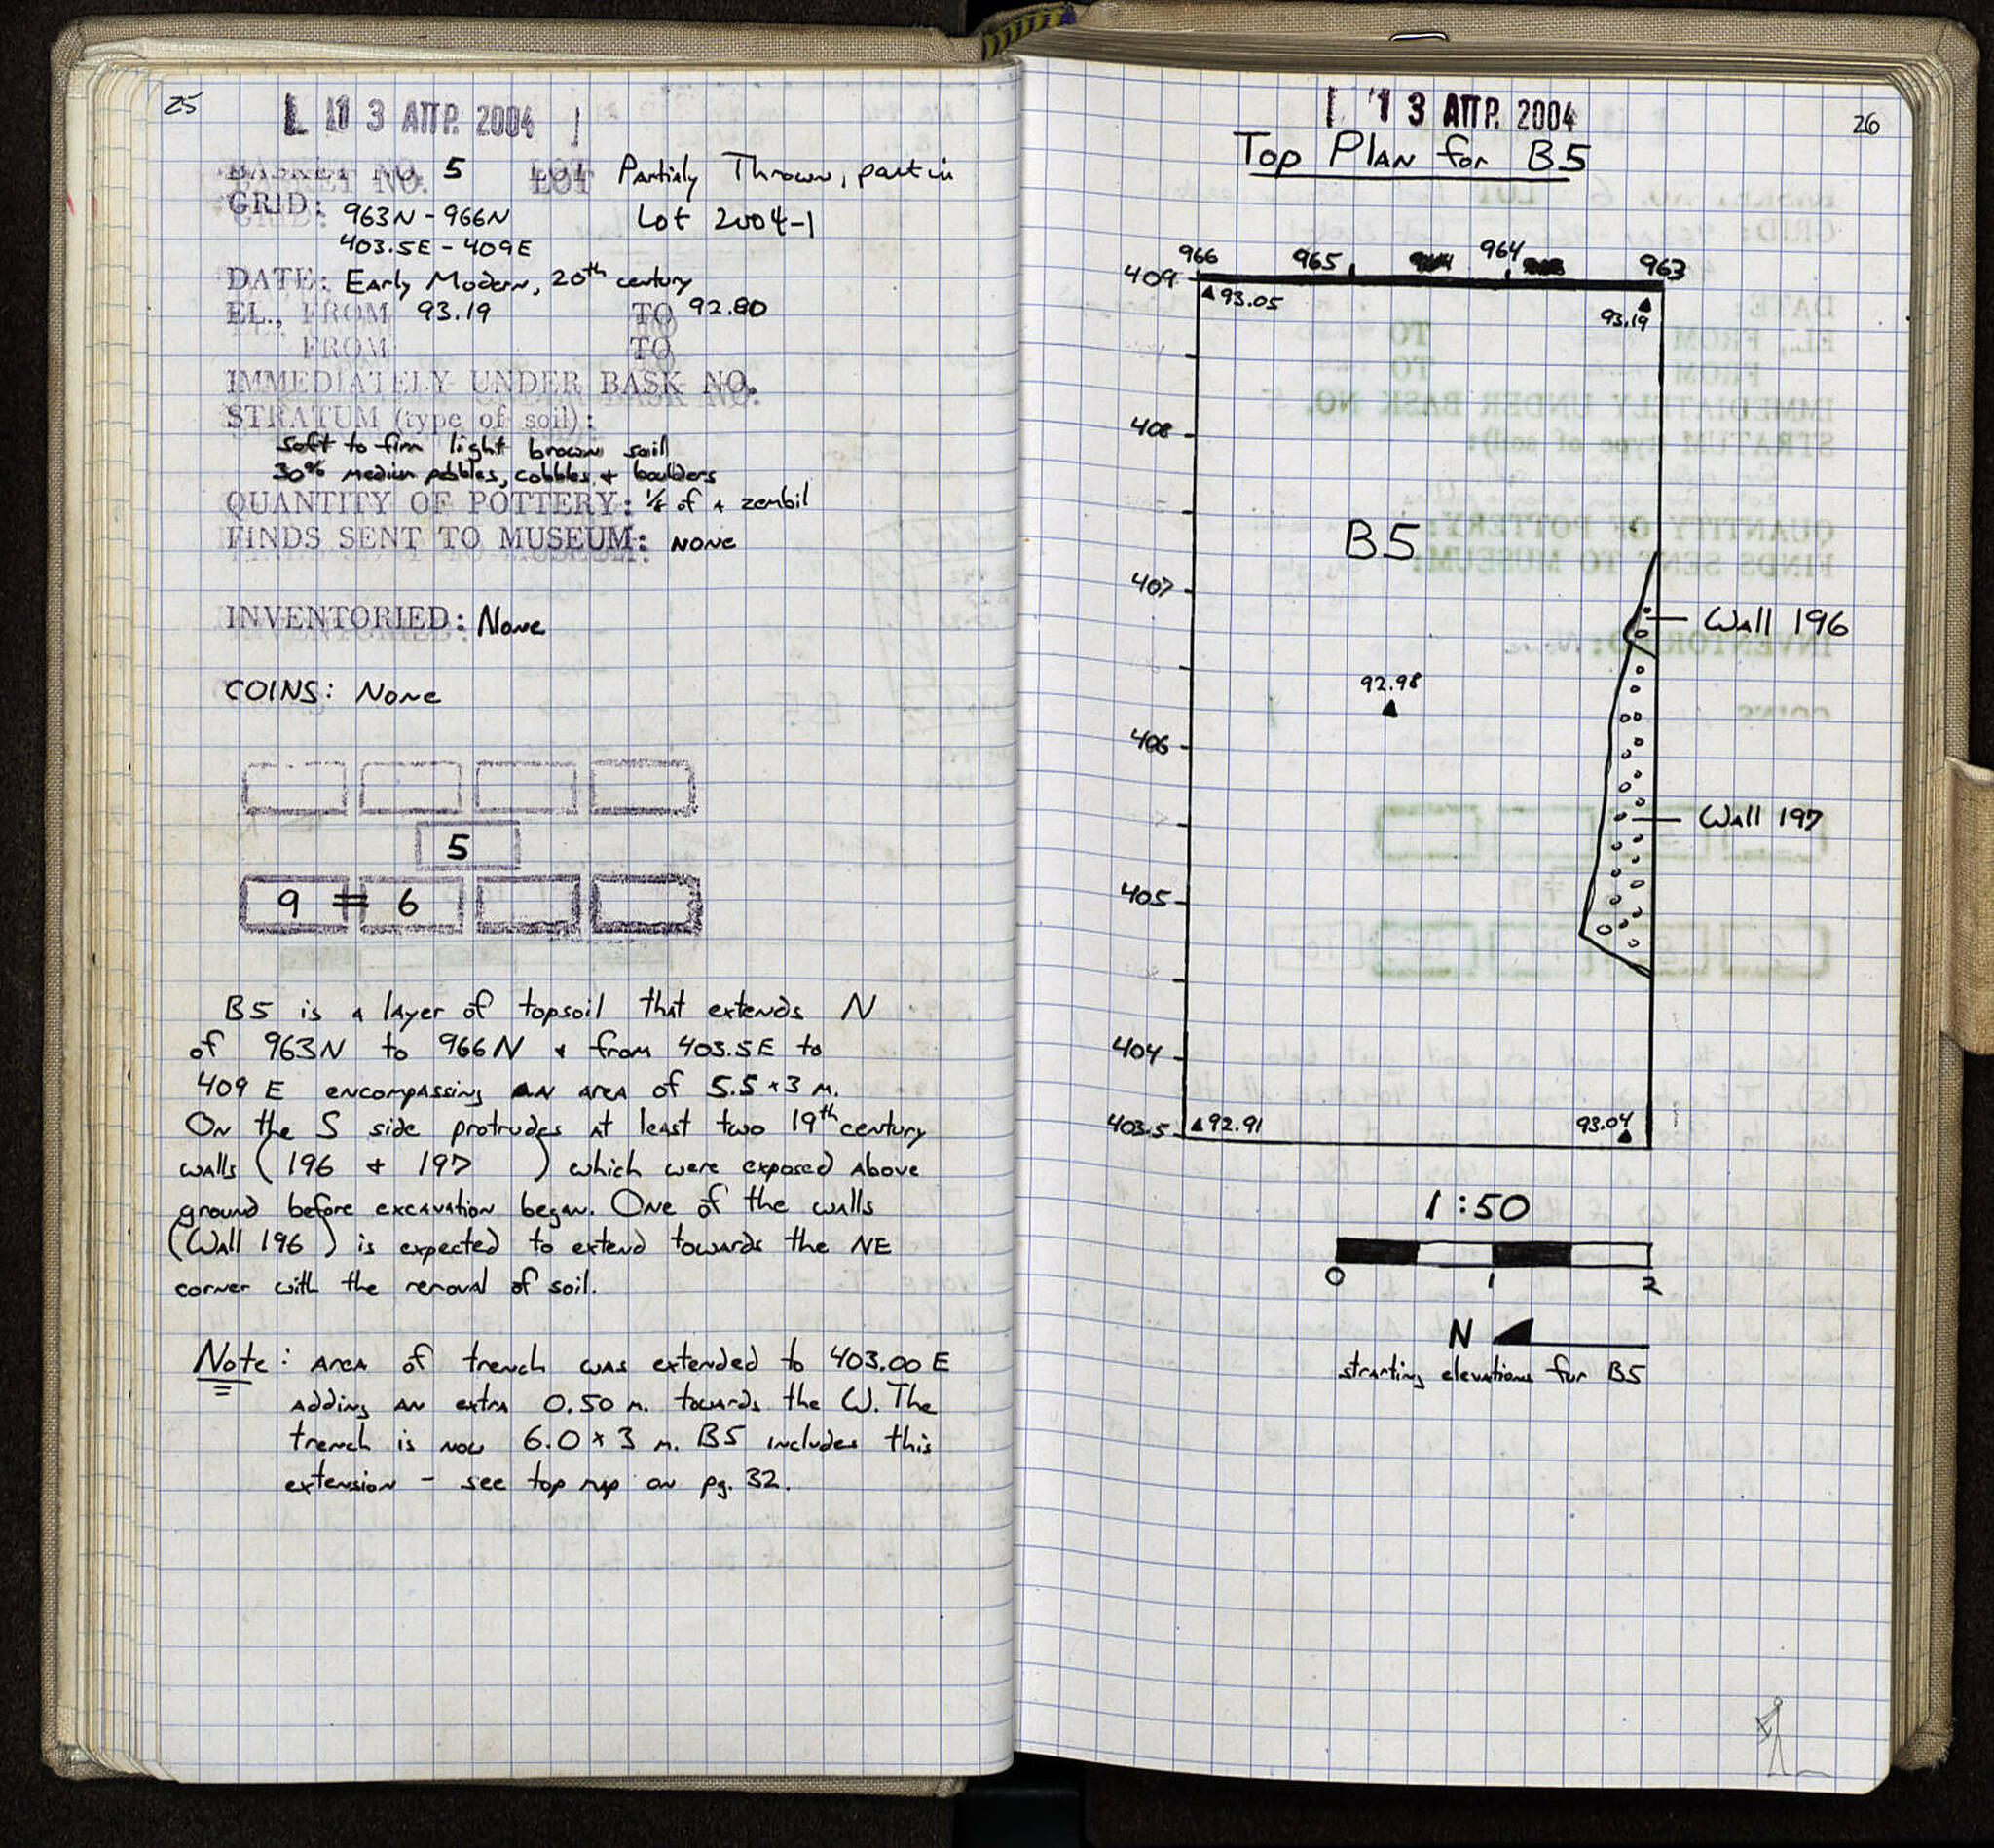 25
13 ΑΠΡ. 2004
BASKET NO. 5 LOT Partialy Thrown, part in
GRID: 963N - 966N Lot 2004-1
403.5E - 409E
DATE: Early Modern, 20th century
EL., FROM 93.19 TO 92.80
FROM TO
IMMEDIATELY UNDER BASK NO.
STRATUM (type of soil):
soft to firm light brown soil
30% medium pebbles, cobbles, + boulders
QUANTITY OF POTTERY: of a zembil
FINDS SENT TO MUSEUM: NONE
INVENTORIED: None
COINS: None
5
9 = 6
B5 is a layer of topsoil that extends N
of 963N to 966N + from 403.5E to
409 E encompassing an area of 5.5 x 3 m.
On the S side protrudes at least two 19th century
walls (196 + 197 ) which were exposed above
ground before excavation began. One of the walls
(Wall 196 ) is expected to extend towards the NE
corner with the removal of soil.
Note: Area of trench was extended to 403.00 E
adding an extra 0.50 m. towards the W. The
trench is now 6.0 x 3 m. B5 includes this
extension - see top map on pg. 32.
13 ΑΠΡ. 2004
26
Top Plan for B5
966 965 964 963
409
93.05 93.19
408
B5
407
Wall 196
92.98
406
Wall 197
405
404
403.5 92.91 93.04
1:50
0 1 2
N
starting elevations for B5